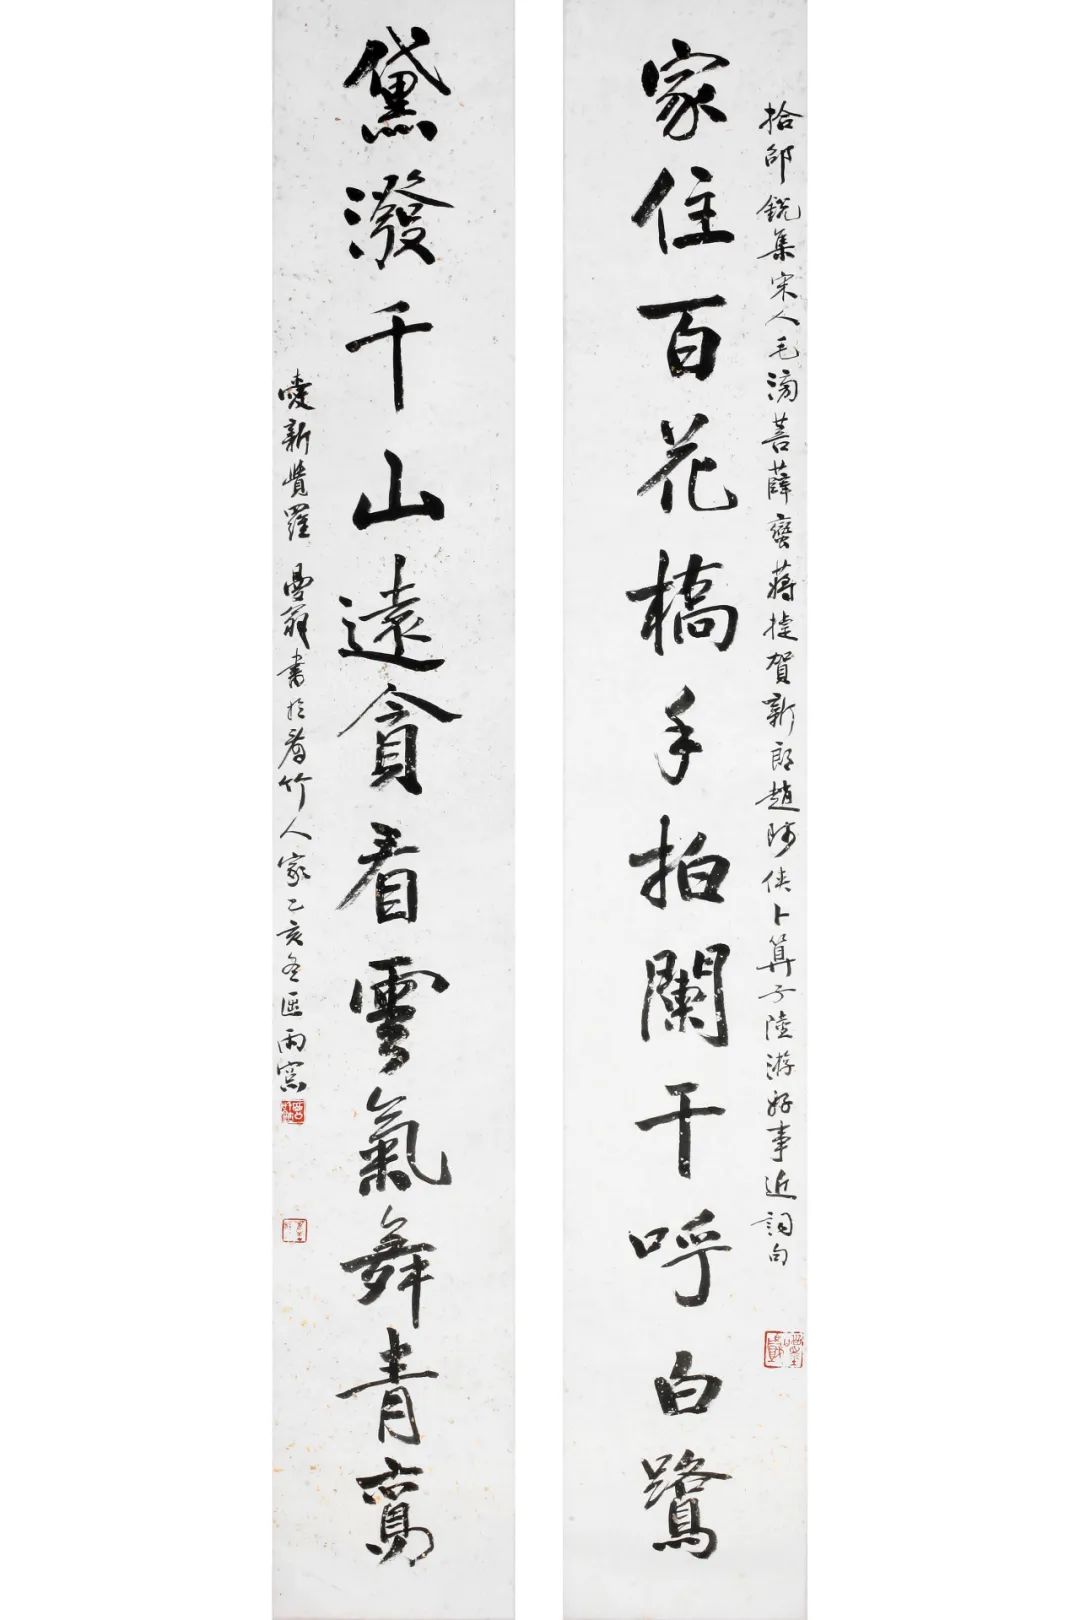 拾邵銳集宋人毛滂菩薩蠻蔣捷賀新郎趙時俠卜算子陸游好事近詞句
家住百花橋手拍闌干呼白鷺
黛潑千山遠貪看雲氣舞青鸞
愛新覺羅 書於看竹人家乙亥冬雨窯